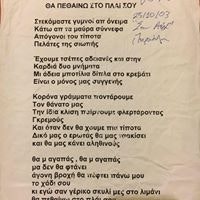 ΘΑ ΠΕΘΑΙΝΩ ΣΤΟ ΠΛΑΪ ΣΟΥ
Στεκόμαστε γυμνοί απ όνειρα
Κάτω απ τα μαύρα σύννεφα
Απόγονοι του τίποτα
Πελάτες της σιωπής
25/10/03
Έχουμε τσέπες αδειανές και στην
Καρδιά δυο μνήματα
Μι άδεια μποτίλια δίπλα στο κρεμάτι
Είναι ο μόνος μας συγγενής
Κορόνα γράμματα ποντάρουμε
Τον θάνατο μας
Την ίδια κλίση παίρνουμε φλερτάροντας
Γκρεμούς
Και όταν δεν θα έχουμε πιη τίποτα
Δικό μας ο ερωτάς θα μας γνωρίσει
και θα μας κάνει αληθινούς
θα μ αγαπάς , θ μ αγαπάς
μα δεν θα φτάνει
άγονη βροχή θα πέφτει πάνω μου
το χάδι σου
κι εγώ σαν γέρικο σκυλί μες στο λιμάνι
θα πεθαίνω στο πλάι σου